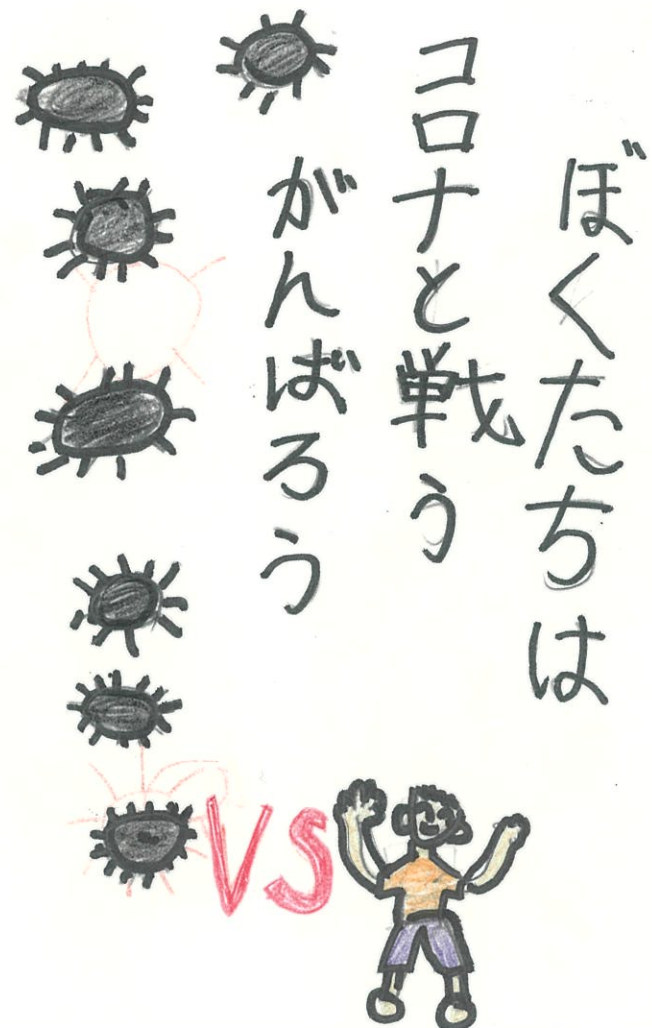 ぼくたちは
コロナと戦う
がんばろう
VS